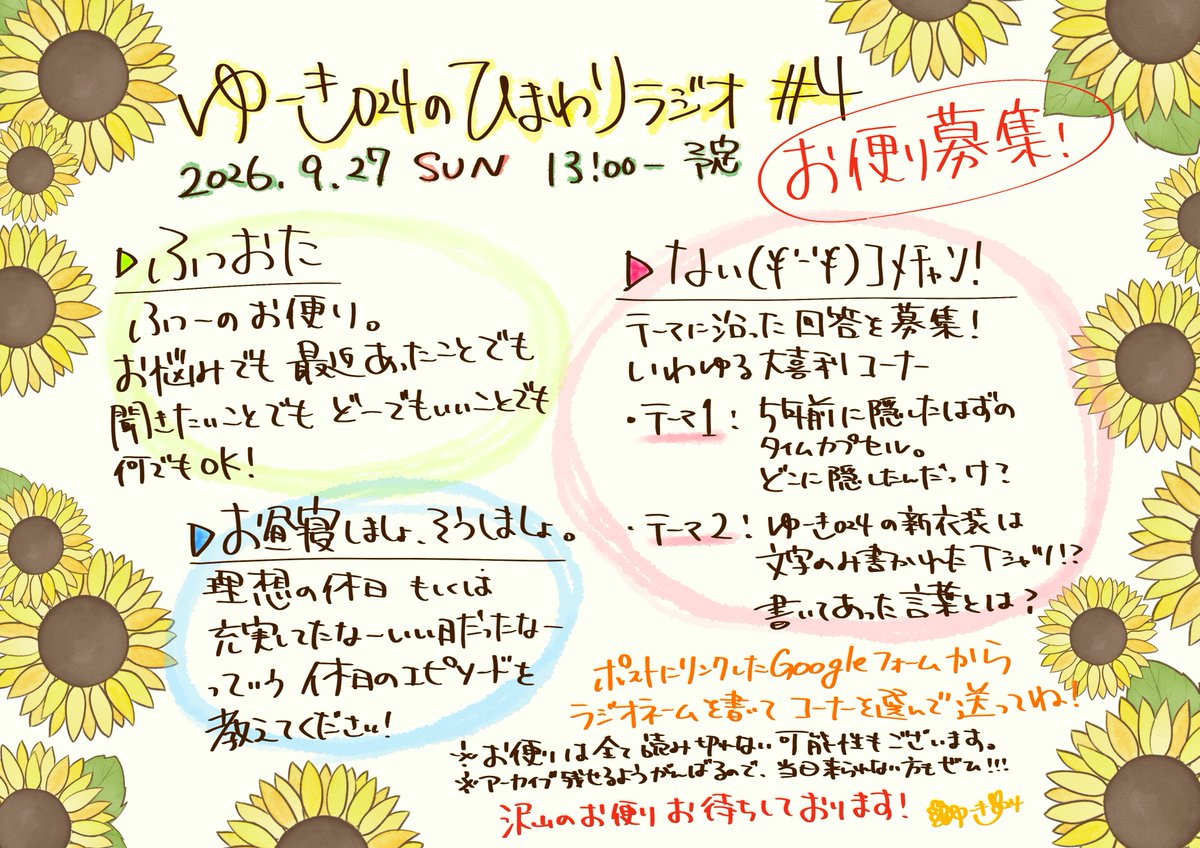 ゆーき024のひまわりラジオ #4
2026.9.27 SUN 13:00- 予定
お便り募集!
▷ふつおた
ふつーのお便り。
お悩みでも最近あったことでも
聞きたいことでもどーでもいいことでも
何でもOK!
▷お昼寝しましょ、そうしましょ。
理想の休日もしくは
充実してたなーいい日だったなー
っていう休日のエピソードを
教えてください!
▷ない(¥¨¥)]メチャン!
テーマに沿った回答を募集!
いわゆる大喜利コーナー
・テーマ1: 5年前に隠したはずの
タイムカプセル。
どこに隠したんだっけ?
・テーマ2: ゆーき024の新衣装は
文字のみ書かれたTシャツ!?
書いてあった言葉とは?
ポストにリンクしたGoogleフォームから
ラジオネームを書いてコーナーを選んで送ってね!
※お便りは全て読み切れない可能性もございます。
※アーカイブ残せるようがんばるので、当日来られない方もぜひ!!!
沢山のお便りお待ちしております!
ゆーき024